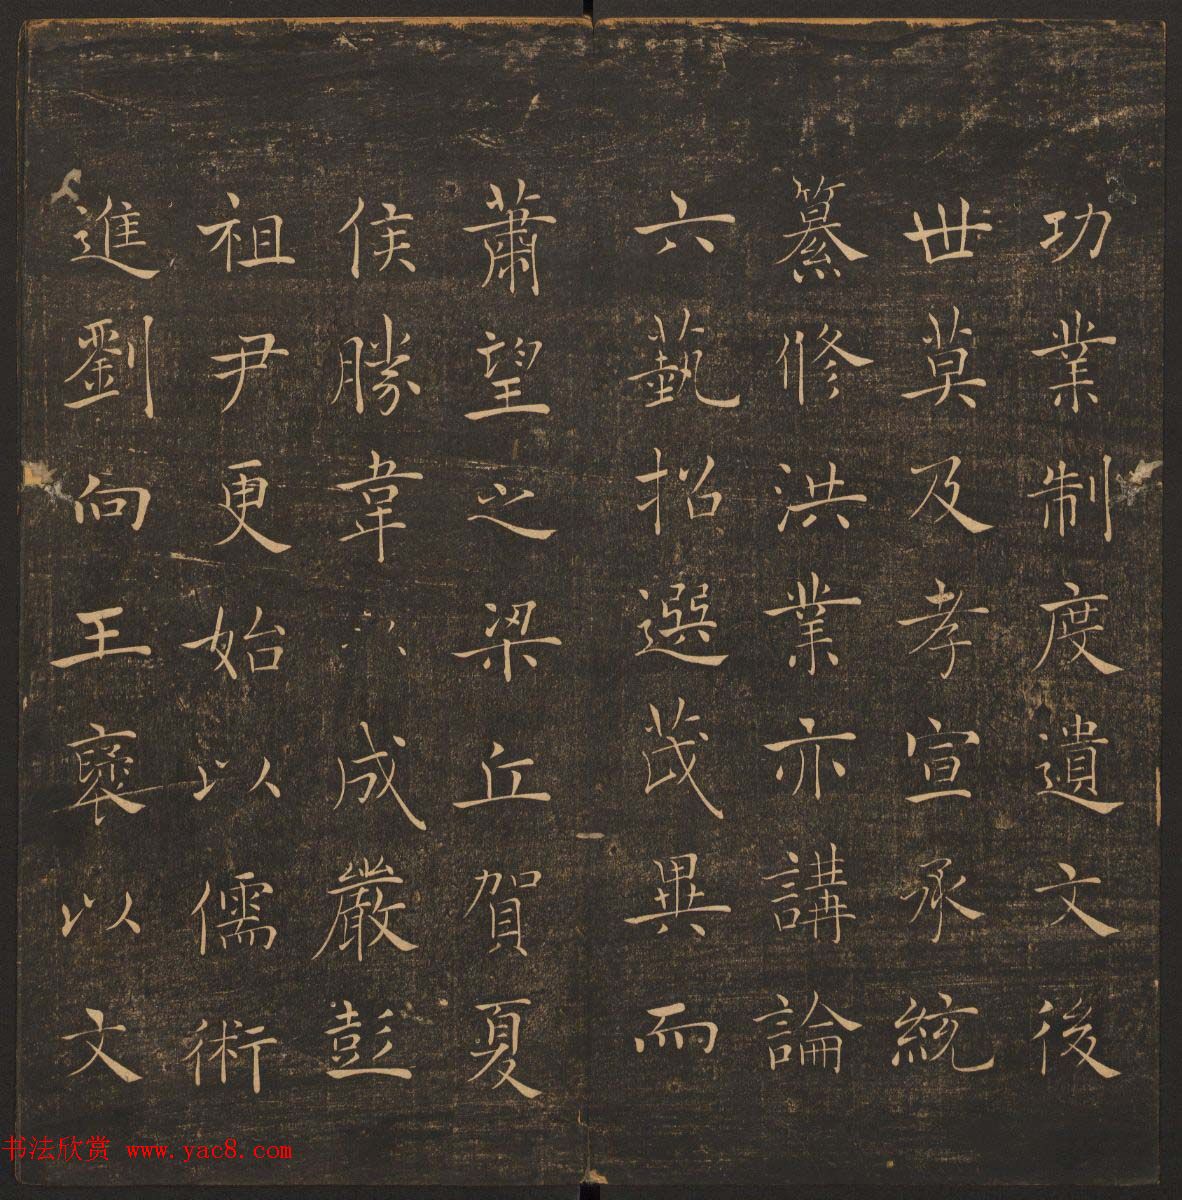 功業制度遺文後
世莫及孝宣承統
纂修洪業亦講論
六藝招選茂異而
蕭望之梁丘賀夏
侯勝韋成嚴彭
祖尹更始以儒術
進劉向王襃以文
书法欣赏 www.yac8.com